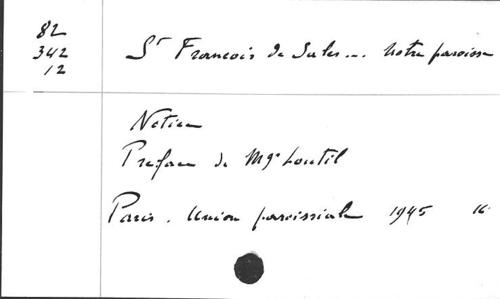 82
342
12
St François de Sales... Notre paroisse
Notice
Préface de Mgr Loutil
Paris. Union paroissiale 1945 16